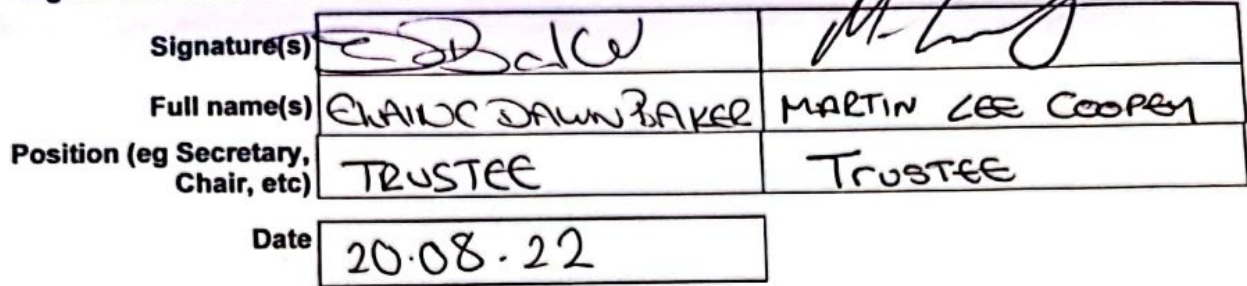 Signature(s)
Full name(s) ELAINE DAWN BAKER MARTIN LEE COOPER
Position (eg Secretary,
Chair, etc) TRUSTEE TRUSTEE
Date 20.08.22